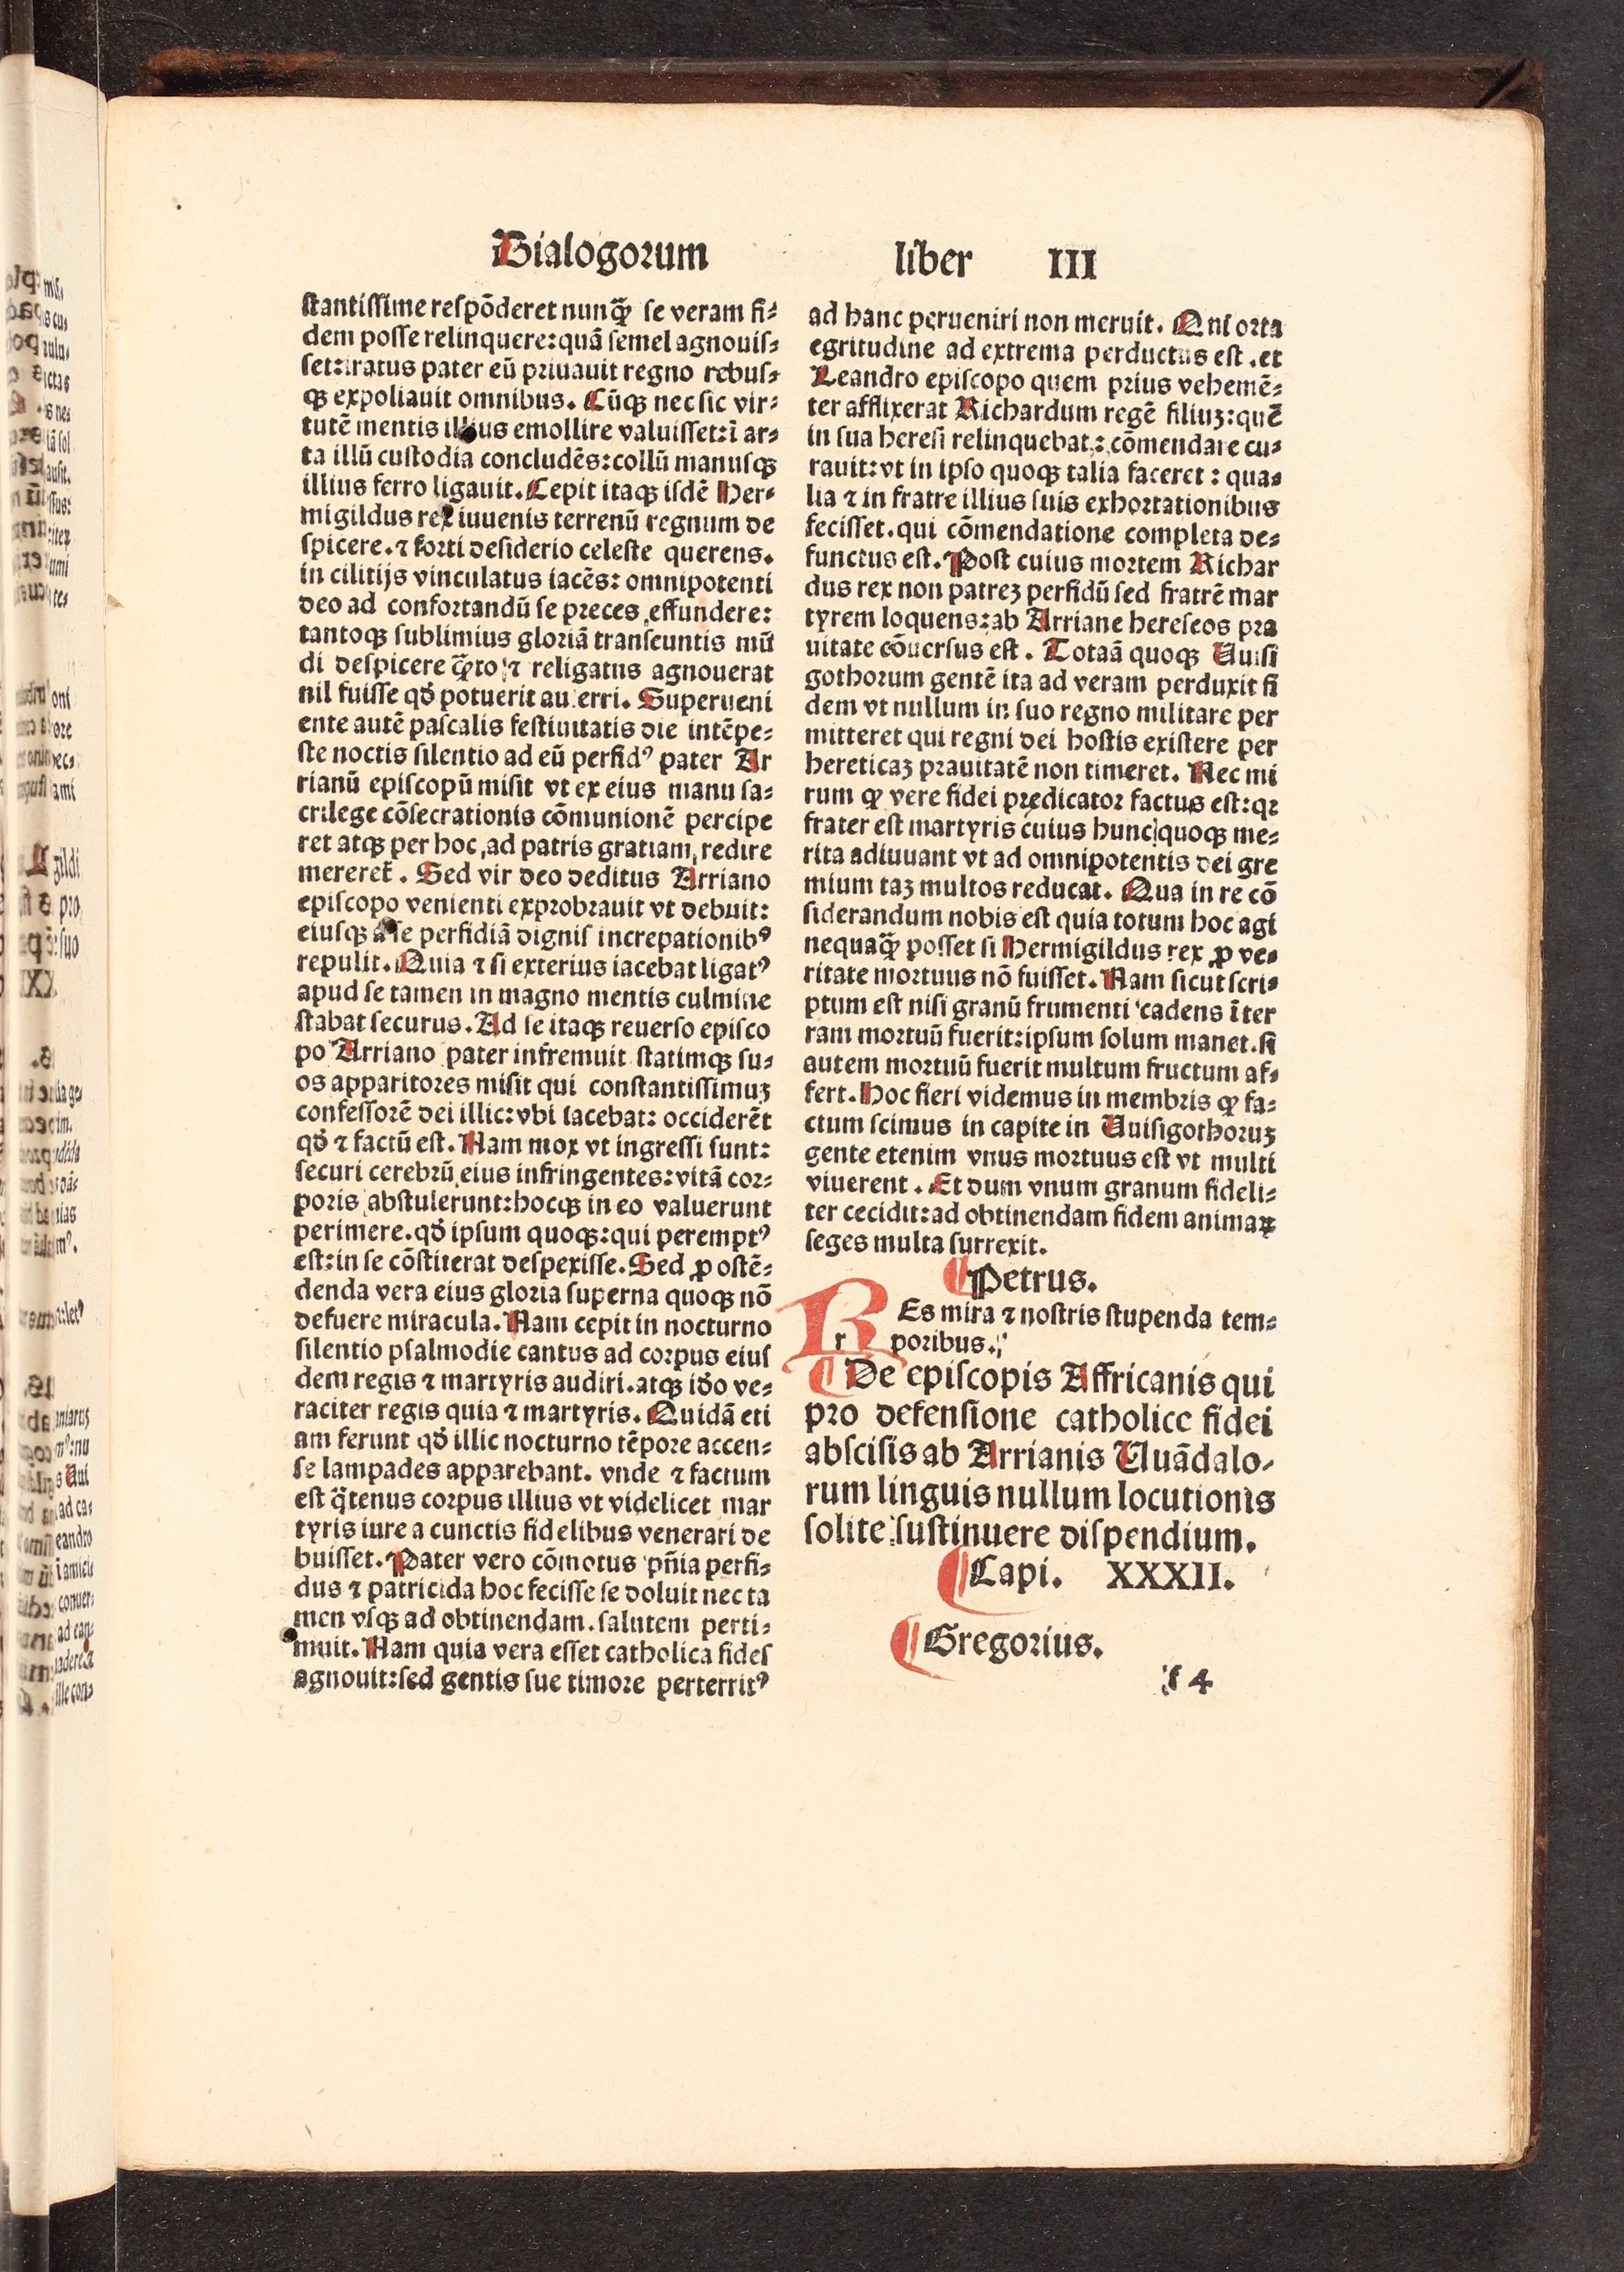 Dialogorum liber III
ſtantiſſime reſpõderet nunq̃ȝ ſe veram fi⸗
dem poſſe relinquere:quã ſemel agnouiſ⸗
ſet:iratus pater eũ priuauit regno rebuſ⸗
qȝ expoliauit omnibus. Cũqȝ nec ſic vir⸗
tutẽ mentis illius emollire valuiſſet:ĩ ar⸗
ta illũ cuſtodia concludẽs:collũ manuſqȝ
illius ferro ligauit. Cepit itaqȝ iſdẽ Her⸗
migildus rex iuuenis terrenũ regnum de
ſpicere.⁊ forti deſiderio celeſte querens.
in cilitijs vinculatus iacẽs: omnipotenti
deo ad confortandũ ſe preces effundere:
tantoqȝ ſublimius gloriã tranſeuntis mũ
di deſpicere q̃to ⁊ religatus agnouerat
nil fuiſſe qð potuerit auferri. Superueni
ente autẽ paſcalis feſtiuitatis die intẽpe⸗
ſte noctis ſilentio ad eũ perfidꝰ pater Ar
rianũ epiſcopũ miſit vt ex eius manu ſa⸗
crilege cõſecrationis cõmunionẽ percipe
ret atqȝ per hoc ad patris gratiam redire
mereret̃. Sed vir deo deditus Arriano
epiſcopo venienti exprobrauit vt debuit:
eiuſqȝ a ſe perfidiã digniſ increpationibꝰ
repulit. Quia ⁊ ſi exterius iacebat ligatꝰ
apud ſe tamen in magno mentis culmine
ſtabat ſecurus. Ad ſe itaqȝ reuerſo epiſco
po Arriano pater infremuit ſtatimqȝ ſu⸗
os apparitores miſit qui conſtantiſſimuȝ
confeſſorẽ dei illic:vbi iacebat: occiderẽt
qð ⁊ factũ eſt. Nam mox vt ingreſſi ſunt:
ſecuri cerebrũ eius infringentes:vitã cor⸗
poris abſtulerunt:hocqȝ in eo valuerunt
perimere.qð ipſum quoqȝ:qui peremptꝰ
eſt:in ſe cõſtiterat deſpexiſſe. Sed ꝓ oſtẽ⸗
denda vera eius gloria ſuperna quoqȝ nõ
defuere miracula. Nam cepit in nocturno
ſilentio pſalmodie cantus ad corpus eiuſ
dem regis ⁊ martyris audiri.atqȝ iðo ve⸗
raciter regis quia ⁊ martyris. Quidã eti
am ferunt qð illic nocturno tẽpore accen⸗
ſe lampades apparebant. vnde ⁊ factum
eſt q̃tenus corpus illius vt videlicet mar
tyris iure a cunctis fidelibus venerari de
buiſſet. Pater vero cõmotus pñia perfi⸗
dus ⁊ patricida hoc feciſſe ſe doluit nec ta
men vſqȝ ad obtinendam.ſalutem perti⸗
muit. Nam quia vera eſſet catholica fideſ
agnouit:ſed gentis ſue timore perterritꝰ
ad hanc perueniri non meruit. Qui orta
egritudine ad extrema perductus eſt.et
Leandro epiſcopo quem prius vehemẽ⸗
ter afflixerat Richardum regẽ filiuȝ:quẽ
in ſua hereſi relinquebat: cõmendare cu⸗
rauit:vt in ipſo quoqȝ talia faceret: qua⸗
lia ⁊ in fratre illius ſuis exhortationibus
feciſſet.qui cõmendatione completa de⸗
functus eſt. Poſt cuius mortem Richar
dus rex non patreȝ perfidũ ſed fratrẽ mar
tyrem loquens:ab Arriane hereſeos pra
uitate cõuerſus eſt. Totaã quoqȝ Uuiſi
gothorum gentẽ ita ad veram perduxit fi
dem vt nullum in ſuo regno militare per
mitteret qui regni dei hoſtis exiſtere per
hereticaȝ prauitatẽ non timeret. Nec mi
rum ꝙ vere fidei predicator factus eſt:qꝛ
frater eſt martyris cuius hunc quoqȝ me⸗
rita adiuuant vt ad omnipotentis dei gre
mium taȝ multos reducat. Qua in re cõ
ſiderandum nobis eſt quia totum hoc agi
nequaq̃ȝ poſſet ſi Hermigildus rex ꝓ ve⸗
ritate mortuus nõ fuiſſet. Nam ſicut ſcri⸗
ptum eſt niſi granũ frumenti cadens ĩ ter
ram mortuũ fuerit:ipſum ſolum manet.ſi
autem mortuũ fuerit multum fructum af⸗
fert. Hoc fieri videmus in membris ꝙ fa⸗
ctum ſcimus in capite in Uuiſigothoruȝ
gente etenim vnus mortuus eſt vt multi
viuerent. Et dum vnum granum fideli⸗
ter cecidit:ad obtinendam fidem animaꝝ
ſeges multa ſurrexit.
¶Petrus.
R Es mira ⁊ noſtris ſtupenda tem⸗
r poribus.
¶De epiſcopis Affricanis qui
pro defenſione catholice fidei
abſciſis ab Arrianis Uuãdalo⸗
rum linguis nullum locutionis
ſolite ſuſtinuere diſpendium.
¶Capi. XXXII.
¶Gregorius.
ſ 4